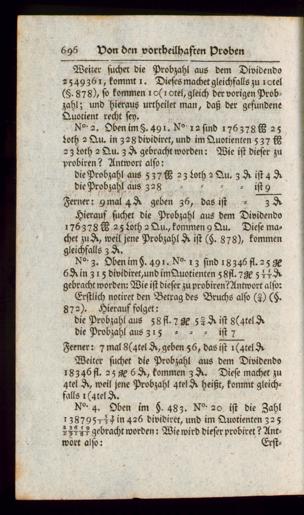 696 Von den vortheilhaften Proben
Weiter suchet die Probzahl aus dem Dividendo
2549361, kommt 1. Dieses machet gleichfalls zu 10tel
(§. 878), so kommen 10(10tel, gleich der vorigen Prob-
zahl; und hieraus urtheilet man, daß der gefundene
Quotient recht sey.
No. 2. Oben im §. 491. No. 12 sind 176378 ℔ 25
Loth 2 Qu. in 328 dividiret, und im Quotienten 537 ℔
23 Loth 2 Qu. 3 ₰ gebracht worden: Wie ist dieser zu
probiren? Antwort also:
die Probzahl aus 537 ℔ 23 Loth 2 Qu. 3 ₰ ist 4 ₰
die Probzahl aus 328 ist 9
Ferner: 9 mal 4 ₰ geben 36, das ist 3 ₰
Hierauf suchet die Probzahl aus dem Dividendo
176378 ℔ 25 Loth 2 Qu., kommen 9 Qu. Diese ma-
chet zu ₰, weil jene Probzahl ₰ ist (§. 878), kommen
gleichfalls 3 ₰.
No. 3. Oben im §. 491. No. 13 sind 18346 fl. 25
6 ₰ in 315 dividiret, und im Quotienten 58 fl. 7
gebracht worden: Wie ist dieser zu probiren? Antwort also:
Erstlich notiret den Betrag des Bruchs also (§.
872). Hierauf folget:
die Probzahl aus 58 fl. 7 ist 8(4tel ₰
die Probzahl aus 315 ist 7
Ferner: 7 mal 8(4tel ₰, geben 56, das ist 1(4tel ₰.
Weiter suchet die Probzahl aus dem Dividendo
18346 fl. 25 6 ₰, kommen 3 ₰. Diese machet zu
4tel ₰, weil jene Probzahl 4tel ₰ heißt, kommt gleich-
falls 1(4tel ₰.
No. 4. Oben im §. 483. No. 20 ist die Zahl
138795 in 426 dividiret, und im Quotienten 325
gebracht worden: Wie wird dieser probiret? Ant-
wort also:
Erst-